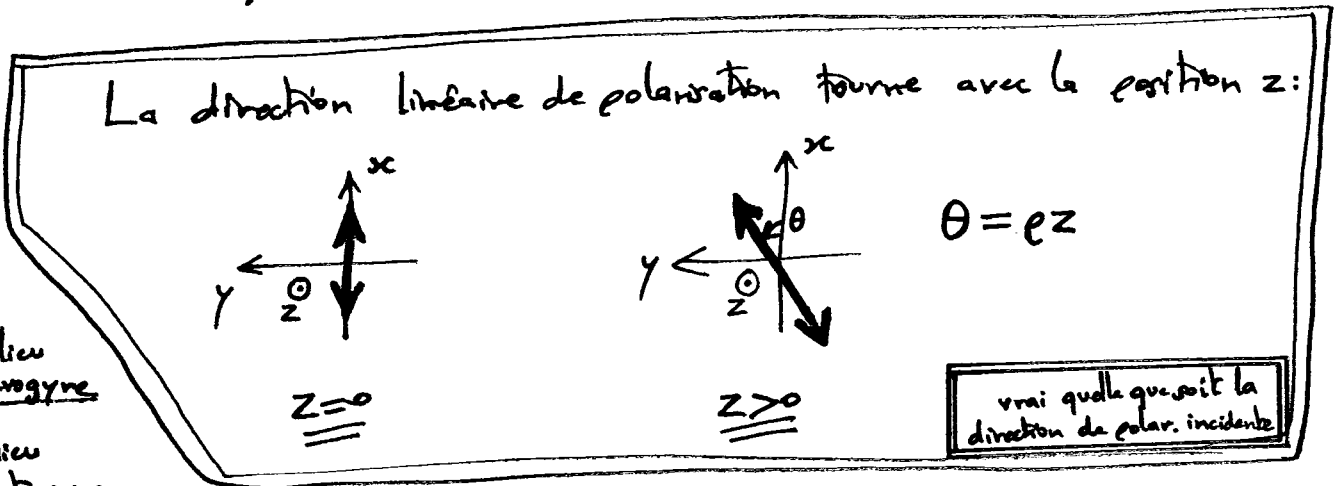 La direction linéaire de polarisation tourne avec la position z:
x
x
θ
θ = ρz
y
z
y
z
lieu
z=0
z>0
vrai quelle que soit la
direction de polar. incidente